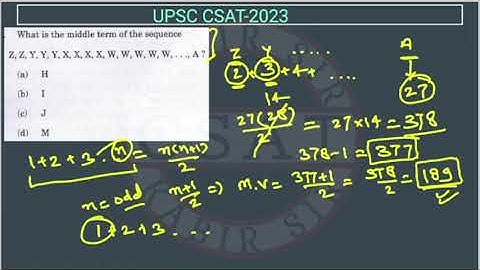 UPSC CSAT-2023
What is the middle term of the sequence
Z, Z, Y, Y, Y, X, X, X, X, W, W, W, W, W, ..., A ?
(a) H
(b) I
(c) J
(d) M
Z Y ..... A
2 + 3 + 4 + .... 27
14
27(28)/2 = 27×14 = 378
378-1 = 377
1+2+3..n = n(n+1)/2
n = odd n+1/2 => M.V = 377+1/2 = 378/2 = 189
1+2+3 ...
CSAT
KABIR SIR